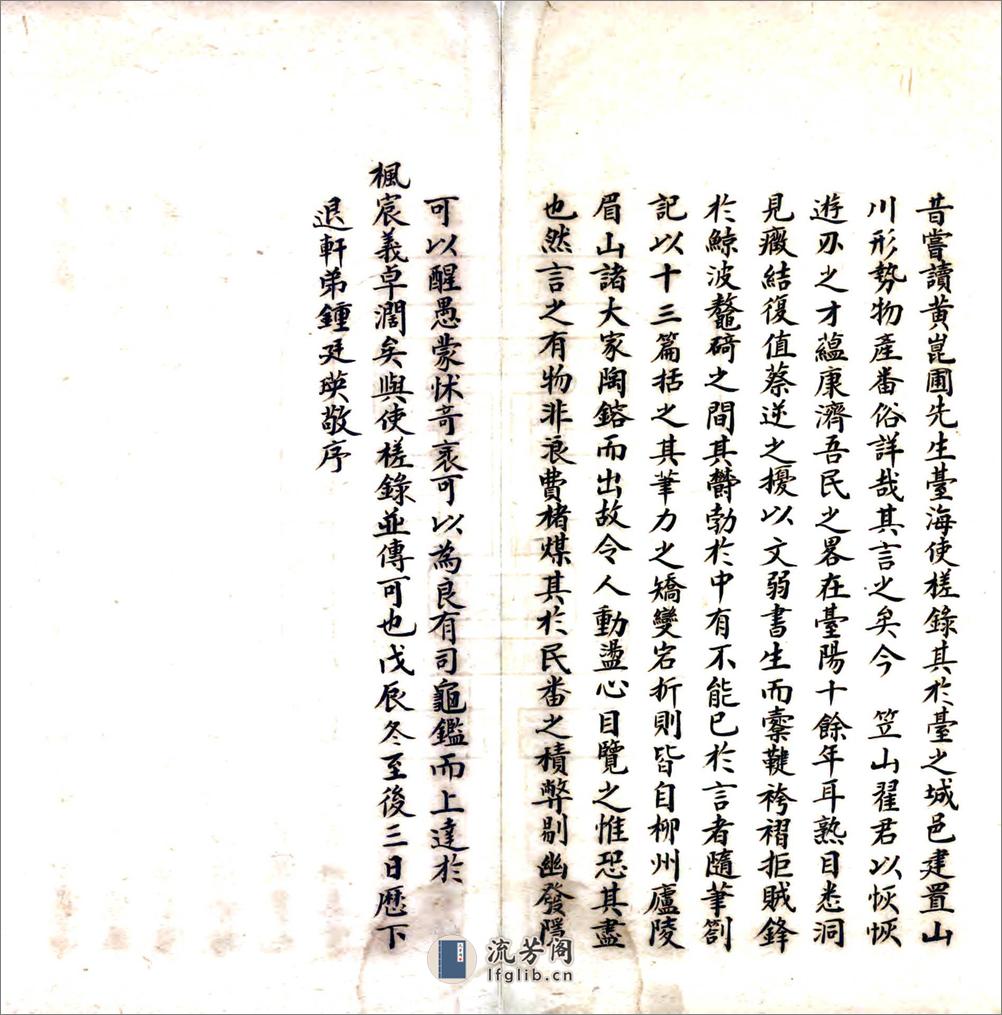 昔嘗讀黄崑圃先生臺海使槎錄其於臺之城邑建置山
川形勢物產畨俗詳哉其言之矣今　笠山翟君以恢恢
遊刃之才蘊康濟吾民之畧在臺陽十餘年耳熟目悉洞
見癥結復值蔡逆之擾以文弱書生而櫜鞬袴褶拒賊鋒
於鯨波鼇碕之間其欝勃於中有不能已於言者隨筆劄
記以十三篇括之其筆力之矯變宕折則皆自柳州廬陵
眉山諸大家陶鎔而出故令人動盪心目覽之惟恐其盡
也然言之有物非浪費楮煤其於民畨之積弊剔幽發隱
可以醒愚蒙怵竒衺可以為良有司龜鑑而上達於
楓宸義卓濶矣與使槎錄並傳可也戊辰冬至後三日歷下
退軒弟鍾廷瑛敬序
流芳阁
lfglib.cn